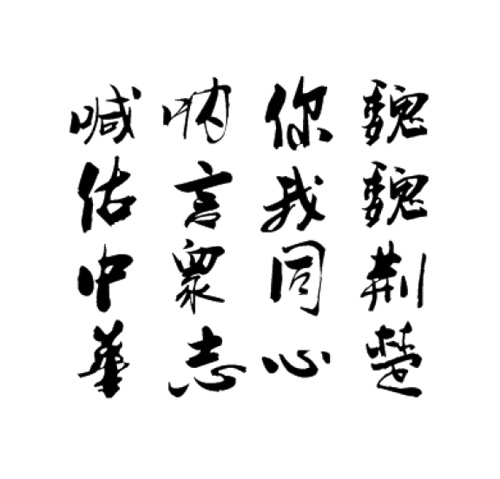 魏魏荆楚
你我同心
呐言众志
喊估中华